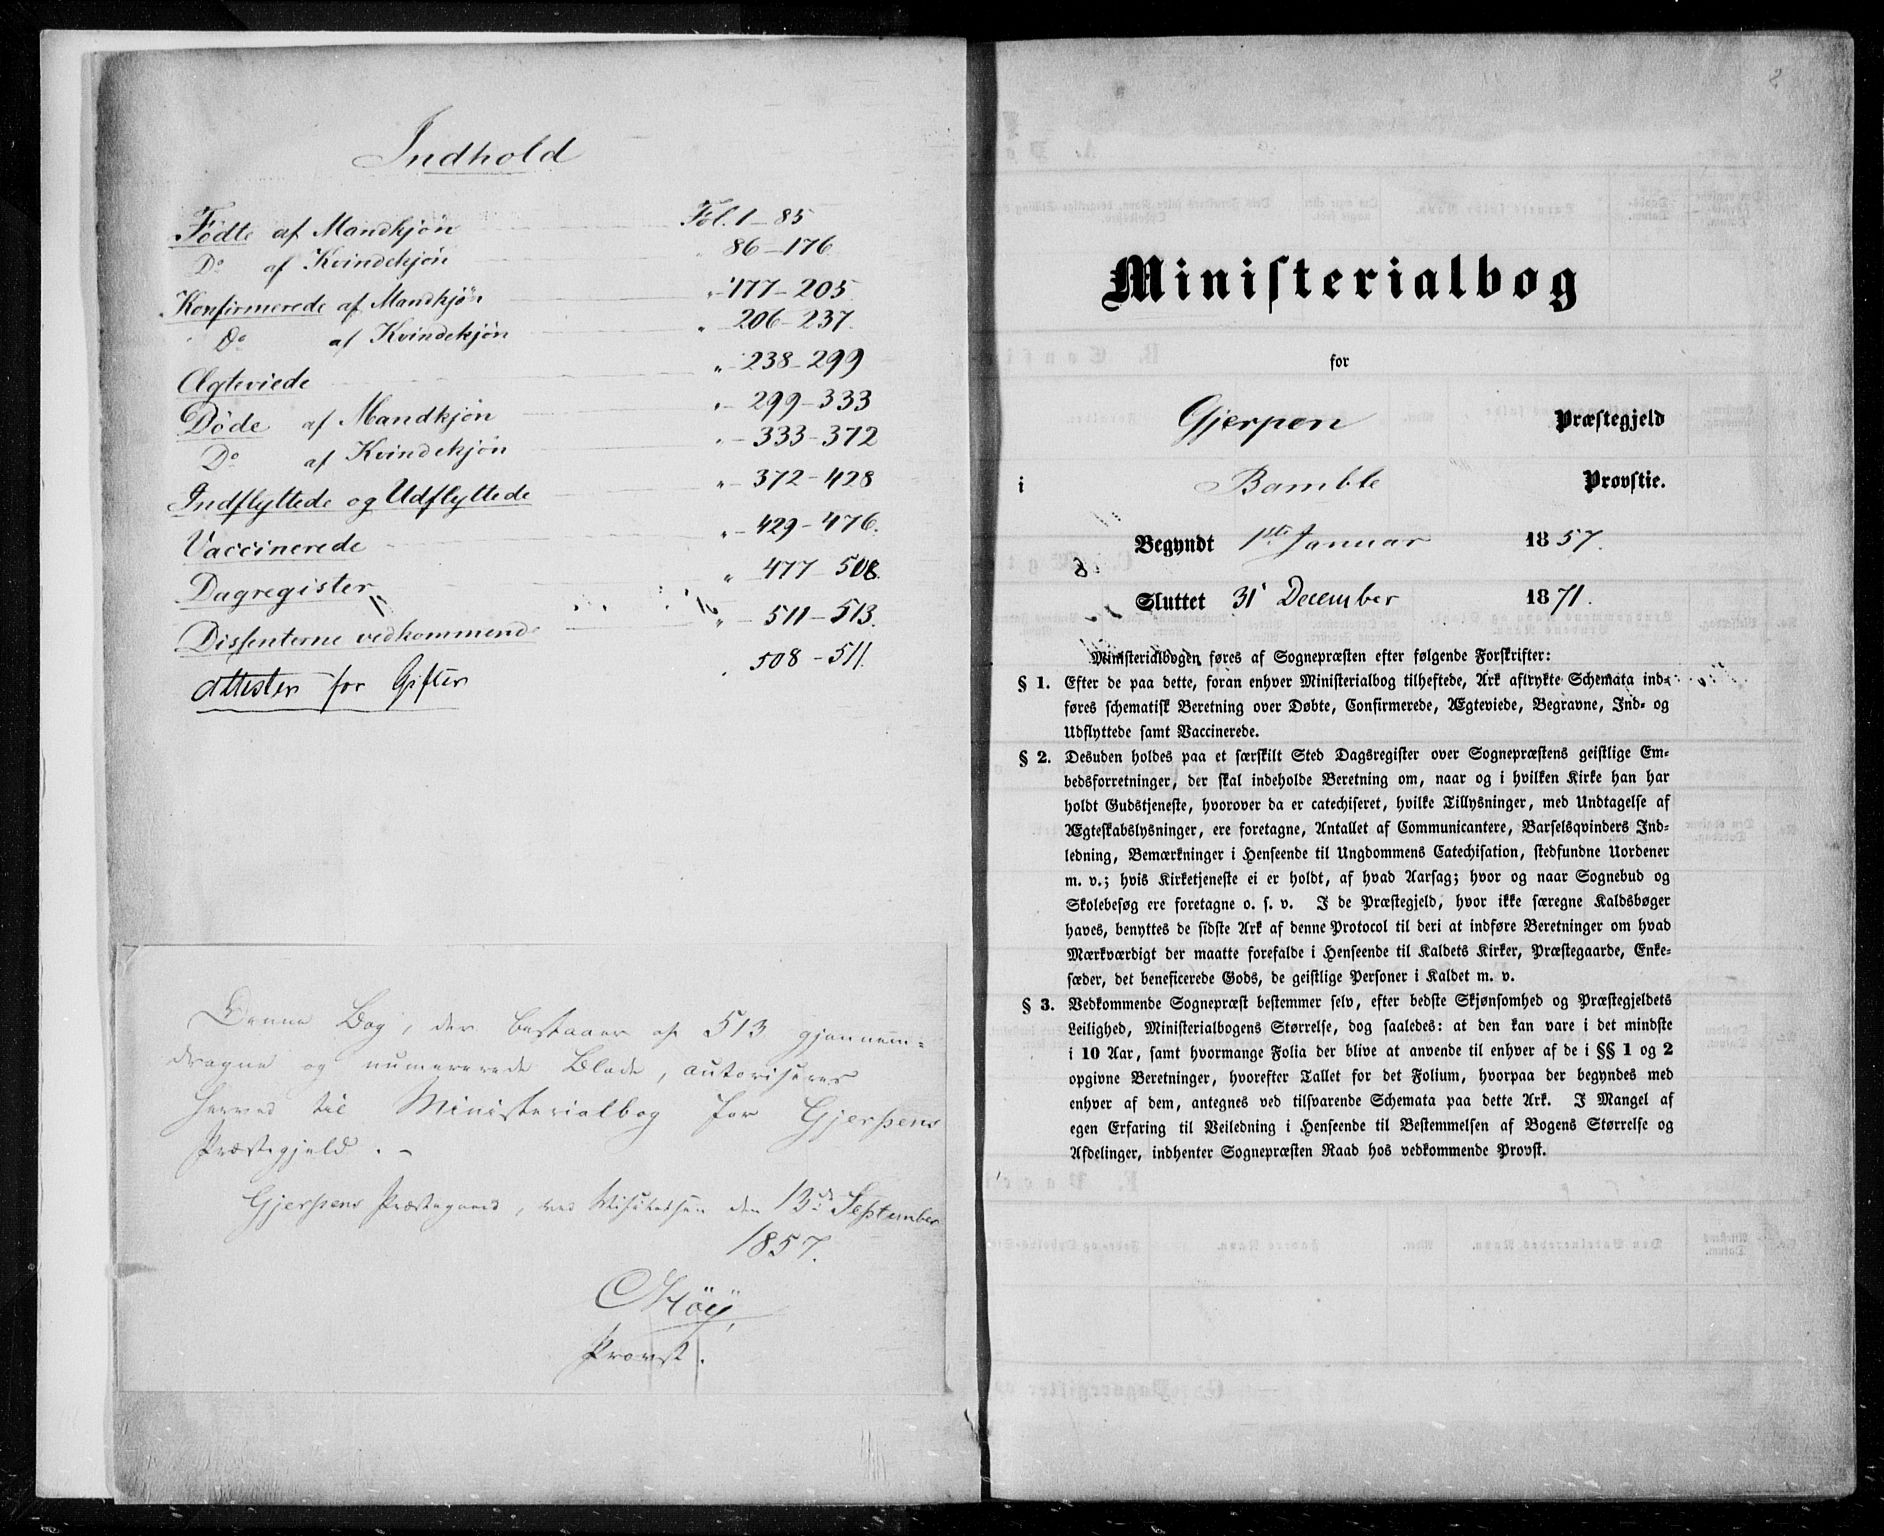 Indhold
Fødte af Mandkjøn Fol. 1-85
Do af Kvindekjøn " 86-176.
Konfirmerede af Mandkjøn "-177-205.
Do af Kvindekjøn " 206-237.
Ægteviede "-238-299
Døde af Mandkjøn "- 299-333
Do af Kvindekjøn "-333-372
Indflyttede og Udflyttede "- 372-428
Vaccinerede "-429-476.
Dagregister " 477-508.
Dissenterne vedkommende "- 511-513.
Attester for Gifter " 508-511.
Denne Bog, der bestaaer af 513 gjennem-
dragne og numererede Blade, autoriseres
herved til Ministerialbog for Gjerpens
Præstegjeld. -
Gjerpens Præstegaard, ved Visitatsen den 13de September
1857.
Høy,
Provst.
2
Ministerialbog
for
Gjerpen Præstegjeld
i Bamble Provstie.
Begyndt 1ste Januar 1857.
Sluttet 31 December 1871.
Ministerialbogen føres af Sognepræsten efter følgende Forskrifter:
§ 1. Efter de paa dette, foran enhver Ministerialbog tilheftede, Ark aftrykte Schemata ind-
føres schematisk Beretning over Døbte, Confirmerede, Ægteviede, Begravne, Ind- og
Udflyttede samt Vaccinerede.
§ 2. Desuden holdes paa et særskilt Sted Dagsregister over Sognepræstens geistlige Em-
bedsforretninger, der skal indeholde Beretning om, naar og i hvilken Kirke han har
holdt Gudstjeneste, hvorover da er catechiseret, hvilke Tillysninger, med Undtagelse af
Ægteskabslysninger, ere foretagne, Antallet af Communicantere, Barselsqvinders Ind-
ledning, Bemærkninger i Henseende til Ungdommens Catechisation, stedfundne Uordener
m. v.; hvis Kirketjeneste ei er holdt, af hvad Aarsag; hvor og naar Sognebud og
Skolebesøg ere foretagne o. s. v. I de Præstegjeld, hvor ikke særegne Kaldsbøger
haves, benyttes de sidste Ark af denne Protocol til deri at indføre Beretninger om hvad
Mærkværdigt der maatte forefalde i Henseende til Kaldets Kirker, Præstegaarde, Enke-
sæder, det beneficerede Gods, de geistlige Personer i Kaldet m. v.
§ 3. Vedkommende Sognepræst bestemmer selv, efter bedste Skjønsomhed og Præstegjeldets
Leilighed, Ministerialbogens Størrelse, dog saaledes: at den kan vare i det mindste
i 10 Aar, samt hvormange Folia der blive at anvende til enhver af de i §§ 1 og 2
opgivne Beretninger, hvorefter Tallet for det Folium, hvorpaa der begyndes med
enhver af dem, antegnes ved tilsvarende Schemata paa dette Ark. I Mangel af
egen Erfaring til Veiledning i Henseende til Bestemmelsen af Bogens Størrelse og
Afdelinger, indhenter Sognepræsten Raad hos vedkommende Provst.